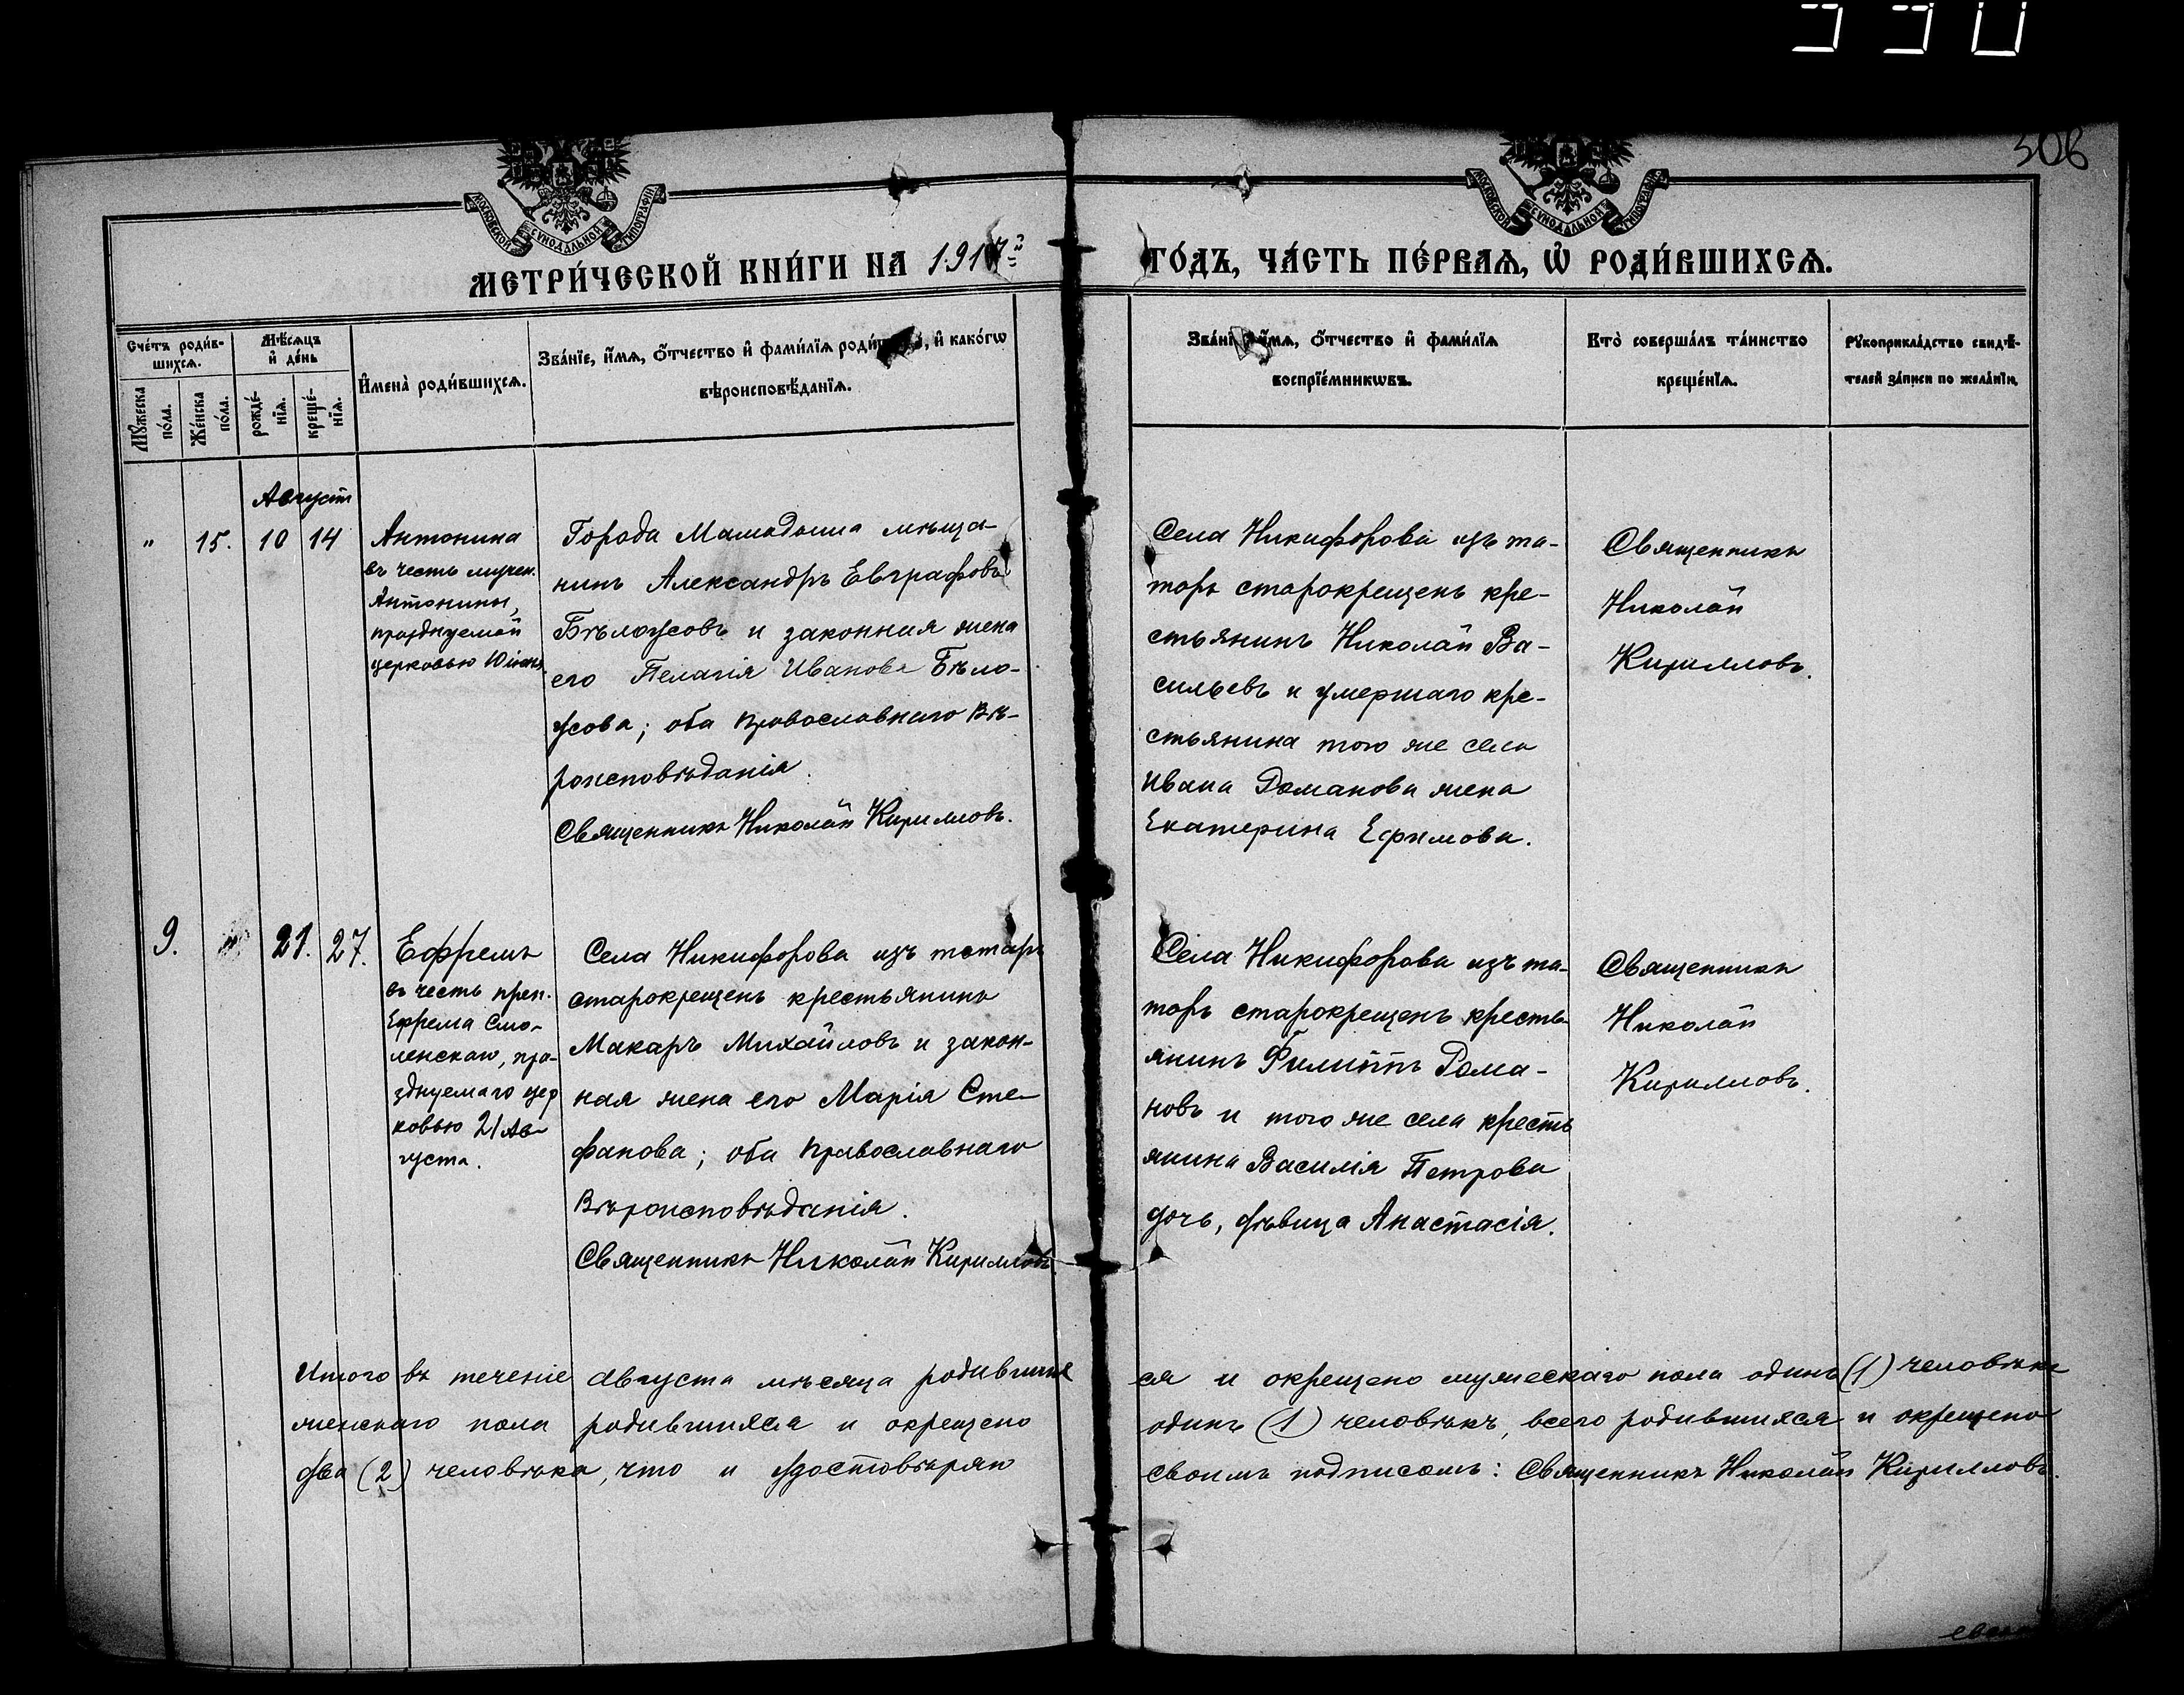 330
306
МОСКОВСКОЙ СѴНОДАЛЬНОЙ ТИПОГРАФІИ
МОСКОВСКОЙ СѴНОДАЛЬНОЙ ТИПОГРАФІИ
МЕТРИ́ЧЕСКОЙ КНИ́ГИ НА 1917 ГО́ДЪ, ЧА́СТЬ ПЕ́РВАѦ, Ѡ҆ РОДИ́ВШИХСѦ.
Сче́тъ роди́в-
шихсѧ.
Мѣ́сѧцъ
и҆ де́нь
Мꙋ́жеска
по́ла.
Же́нска
по́ла.
рожде́-
нїѧ.
креще́-
нїѧ.
И҆мена̀ роди́вшихсѧ.
Зва́нїе, и҆́мѧ, ѻ҆́тчество и҆ фами́лїѧ , и҆ како́гѡ
вѣроисповѣ́данїѧ.
и҆́мѧ, ѻ҆́тчество и҆ фами́лїѧ
воспрїе́мникѡвъ.
Кто̀ соверша́лъ та́инство
креще́нїѧ.
Рꙋкоприкла́дство свидѣ́-
телей за́писи по жела́нїю.
Августъ
" 15. 10 14
Антонина
въ честь мучен.
Антонины,
празднуемой
церковью 10 іюня.
Города Мамадыша мѣща-
нинъ Александръ Евграфовъ
Бѣлоусовъ и законная жена
его Пелагія Иванова Бѣло-
усова; оба православнаго вѣ-
роисповѣданія.
Священникъ Николай Кирилловъ.
Села Никифорова изъ та-
таръ старокрещенъ кре-
стьянинъ Николай Ва-
сильевъ и умершаго кре-
стьянина того же села
Ивана Романова жена
Екатерина Ефимова.
Священникъ
Николай
Кирилловъ.
9. " 21. 27.
Ефремъ
въ честь преп.
Ефрема Смо-
ленскаго, пра-
зднуемаго цер
ковью 21 Ав-
густа.
Села Никифорова изъ татаръ
старокрещенъ крестьянинъ
Макаръ Михайловъ и закон-
ная жена его Марія Сте-
фанова; оба православнаго
вѣроисповѣданія.
Священникъ Николай Кирилловъ
Села Никифорова изъ та-
таръ старокрещенъ кресть-
янинъ Филиппъ Рома-
новъ и того же села кресть
янина Василія Петрова
дочь, дѣвица Анастасія.
Священникъ
Николай
Кирилловъ.
Итого въ теченіе августа мѣсяца родивших ся и окрещено мужескаго пола одинъ (1) человѣкъ
женскаго пола родившихся и окрещено одинъ (1) человѣкъ, всего родившихся и окрещено
два (2) человѣка, что и удостовѣряю своимъ подписомъ: Священникъ Николай Кирилловъ.